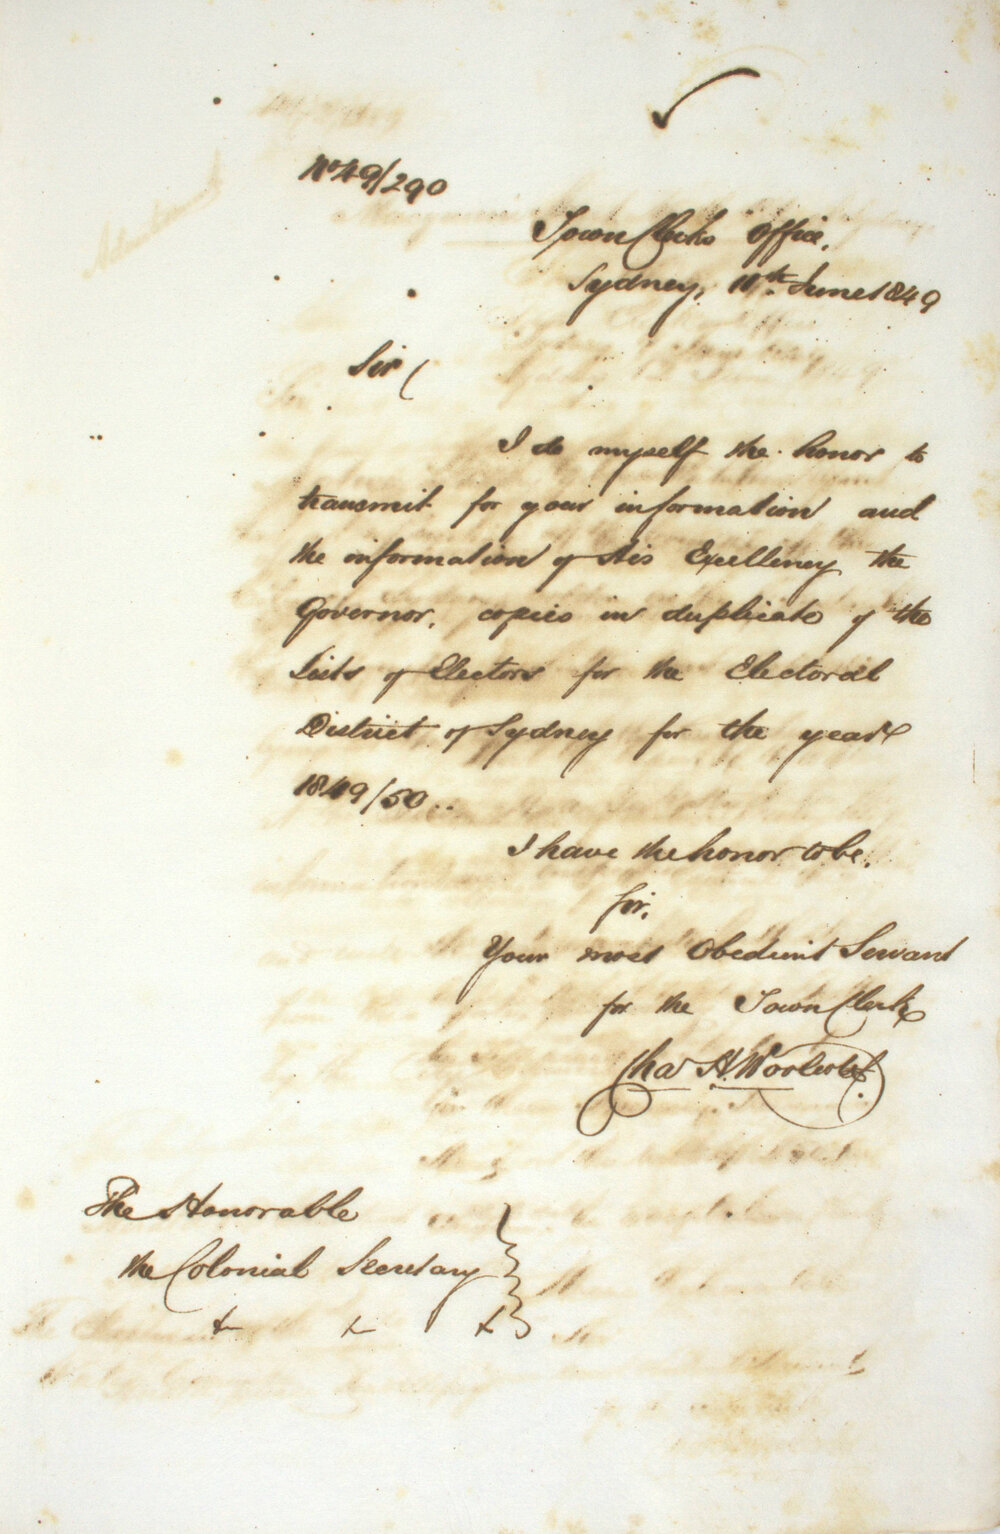 No 49/290
Town Clerks Office,
Sydney, 11th June 1849
Sir
I do myself the honor to
transmit for your information and
the information of His Excellency the
Governor, copies in duplicate of the
Lists of Electors for the Electoral
District of Sydney for the year
1849/50..
I have the honor to be,
Sir,
Your most Obedient Servant
for the Town Clerk
Chas H. Woolcott
The Honorable
the Colonial Secretary
&c &c &c